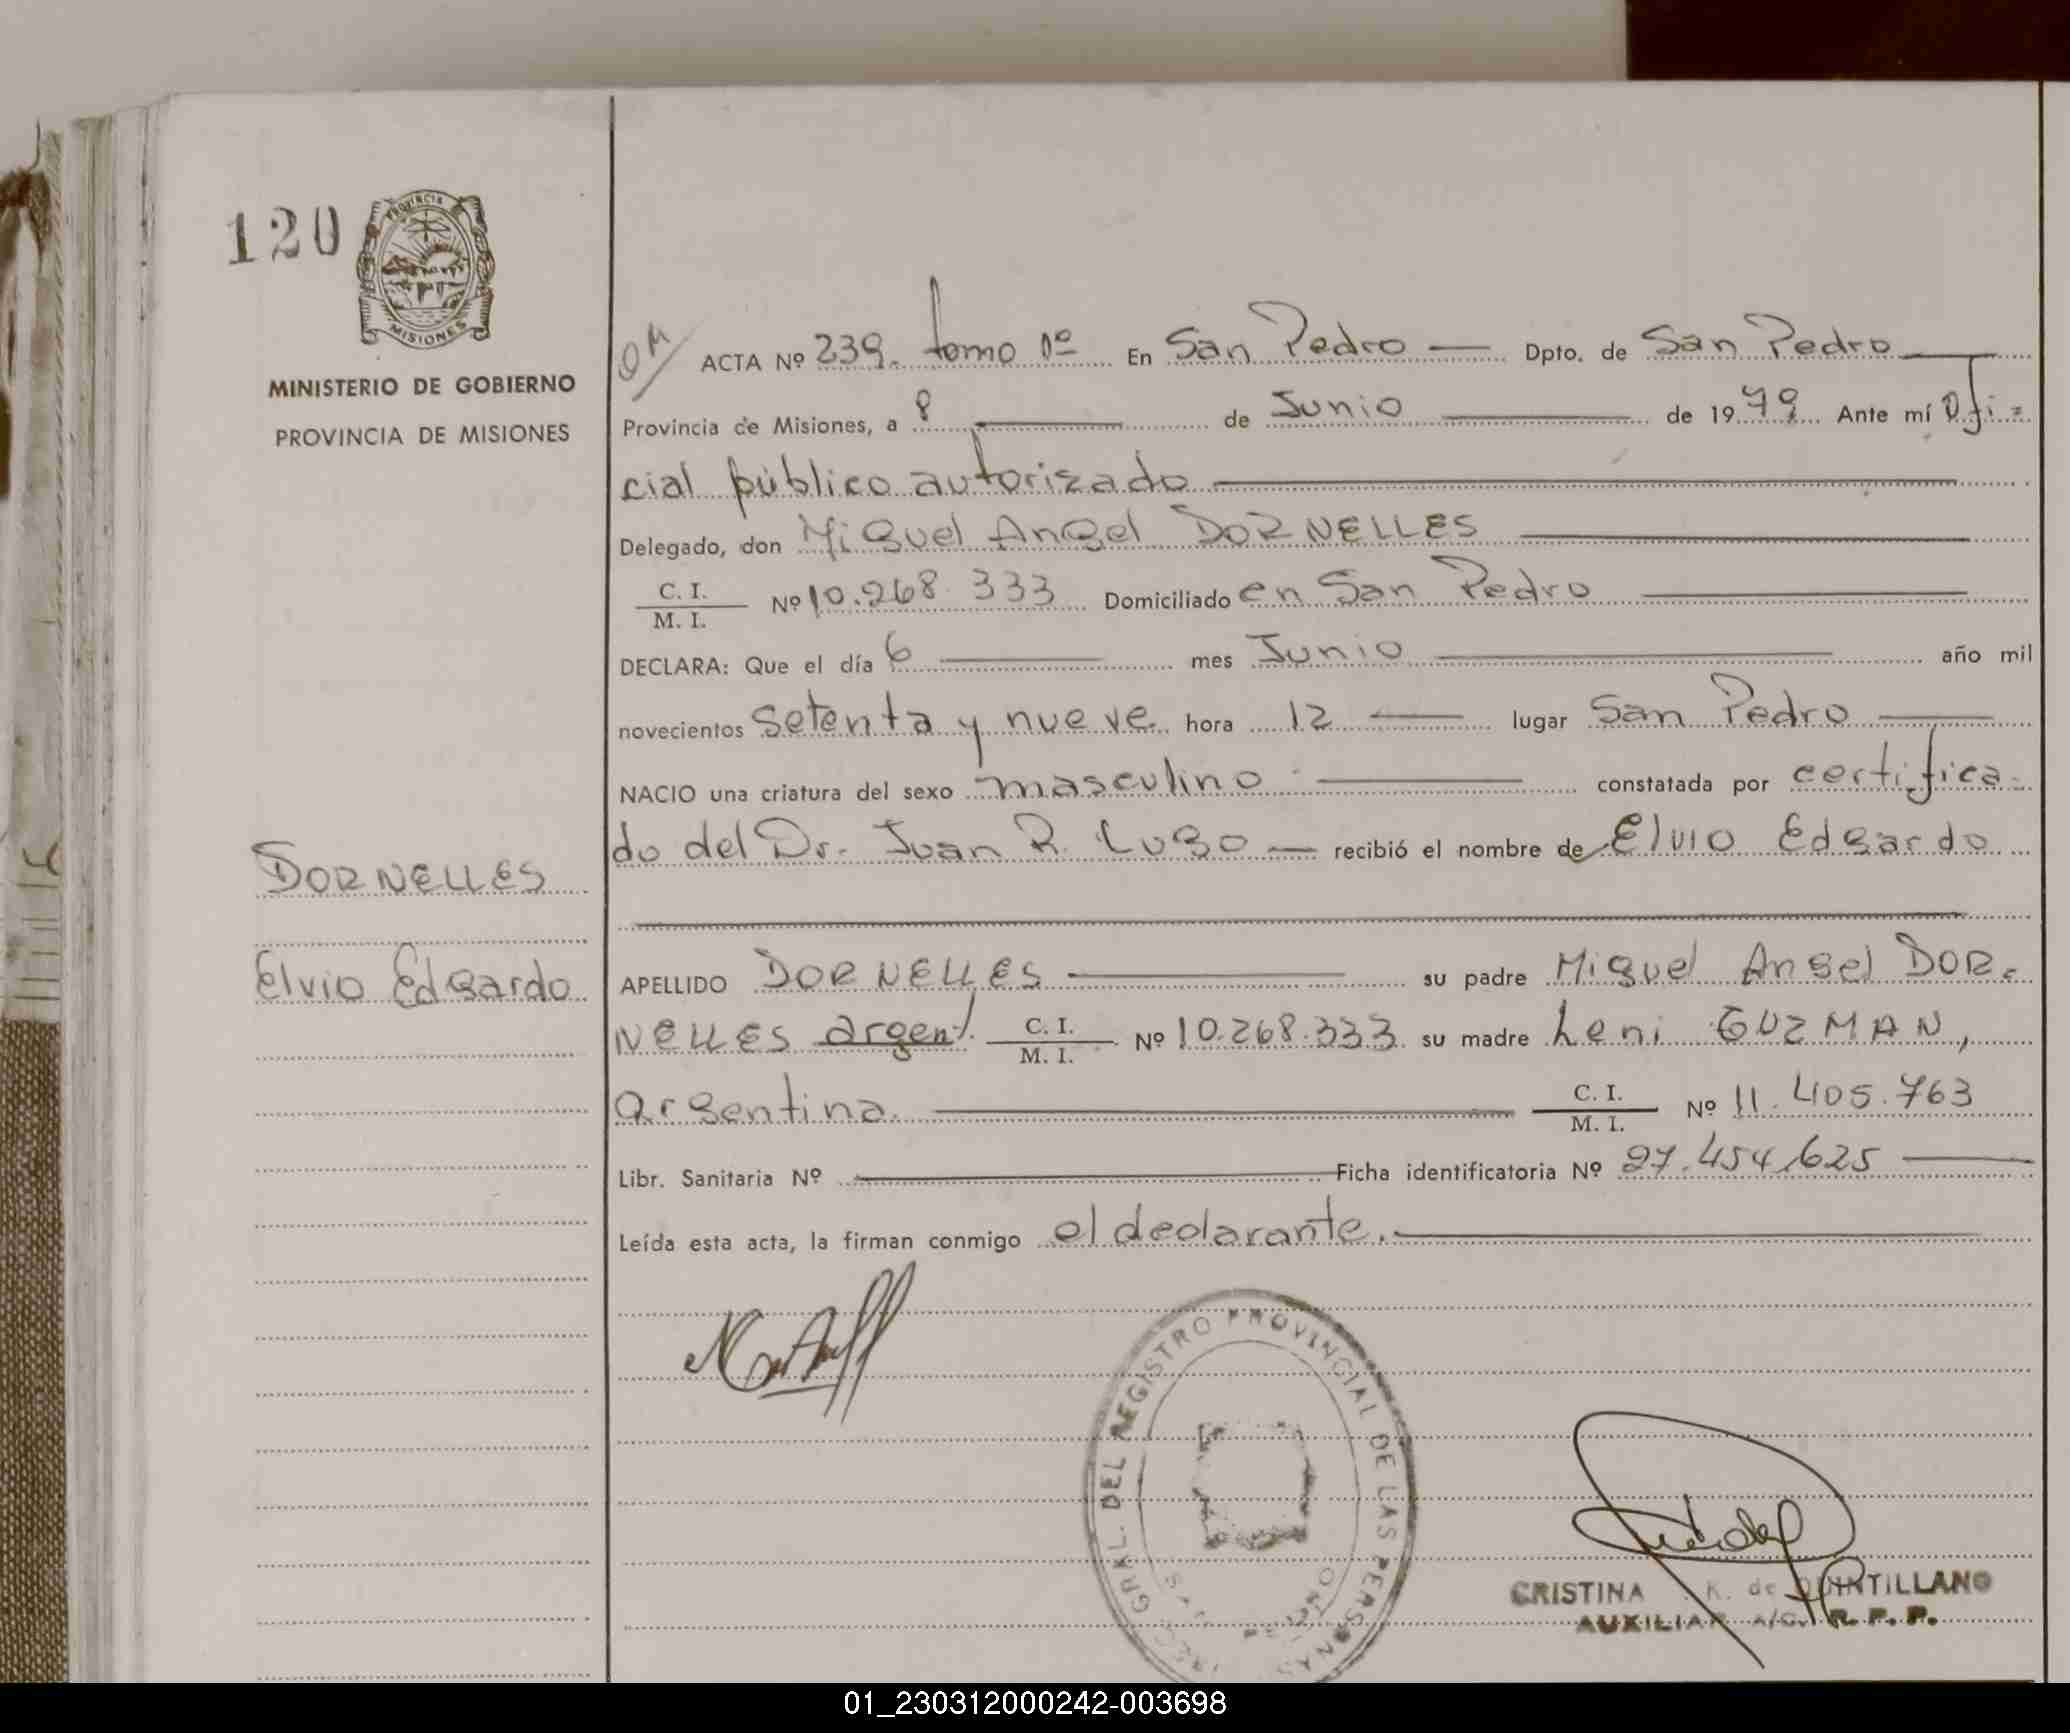 120
PROVINCIA
MISIONES
MINISTERIO DE GOBIERNO
PROVINCIA DE MISIONES
DORNELLES
Elvio Edgardo
ACTA Nº 239. tomo 1º En San Pedro Dpto. de San Pedro
Provincia de Misiones, a 8 de Junio de 1979 Ante mí Ofi=
cial público autorizado
Delegado, don Miguel Angel DORNELLES
C. I.
M. I. Nº 10.268.333 Domiciliado en San Pedro
DECLARA: Que el día 6 mes Junio año mil
novecientos setenta y nueve hora 12 lugar San Pedro
NACIO una criatura del sexo masculino constatada por certifica-
do del Dr. Juan R. Lugo recibió el nombre de Elvio Edgardo
APELLIDO DORNELLES su padre Miguel Angel DOR-
NELLES argent. C. I. M. I. Nº 10.268.333 su madre Leni GUZMAN,
argentina. C. I. M. I. Nº 11.405.763
Libr. Sanitaria Nº Ficha identificatoria Nº 27.454.625
Leída esta acta, la firman conmigo el declarante.
GRAL. DEL REGISTRO PROVINCIAL DE LAS PERSONAS
CRISTINA K. de QUINTILLANO
AUXILIAR A/C. R. P. P.
01_230312000242-003698